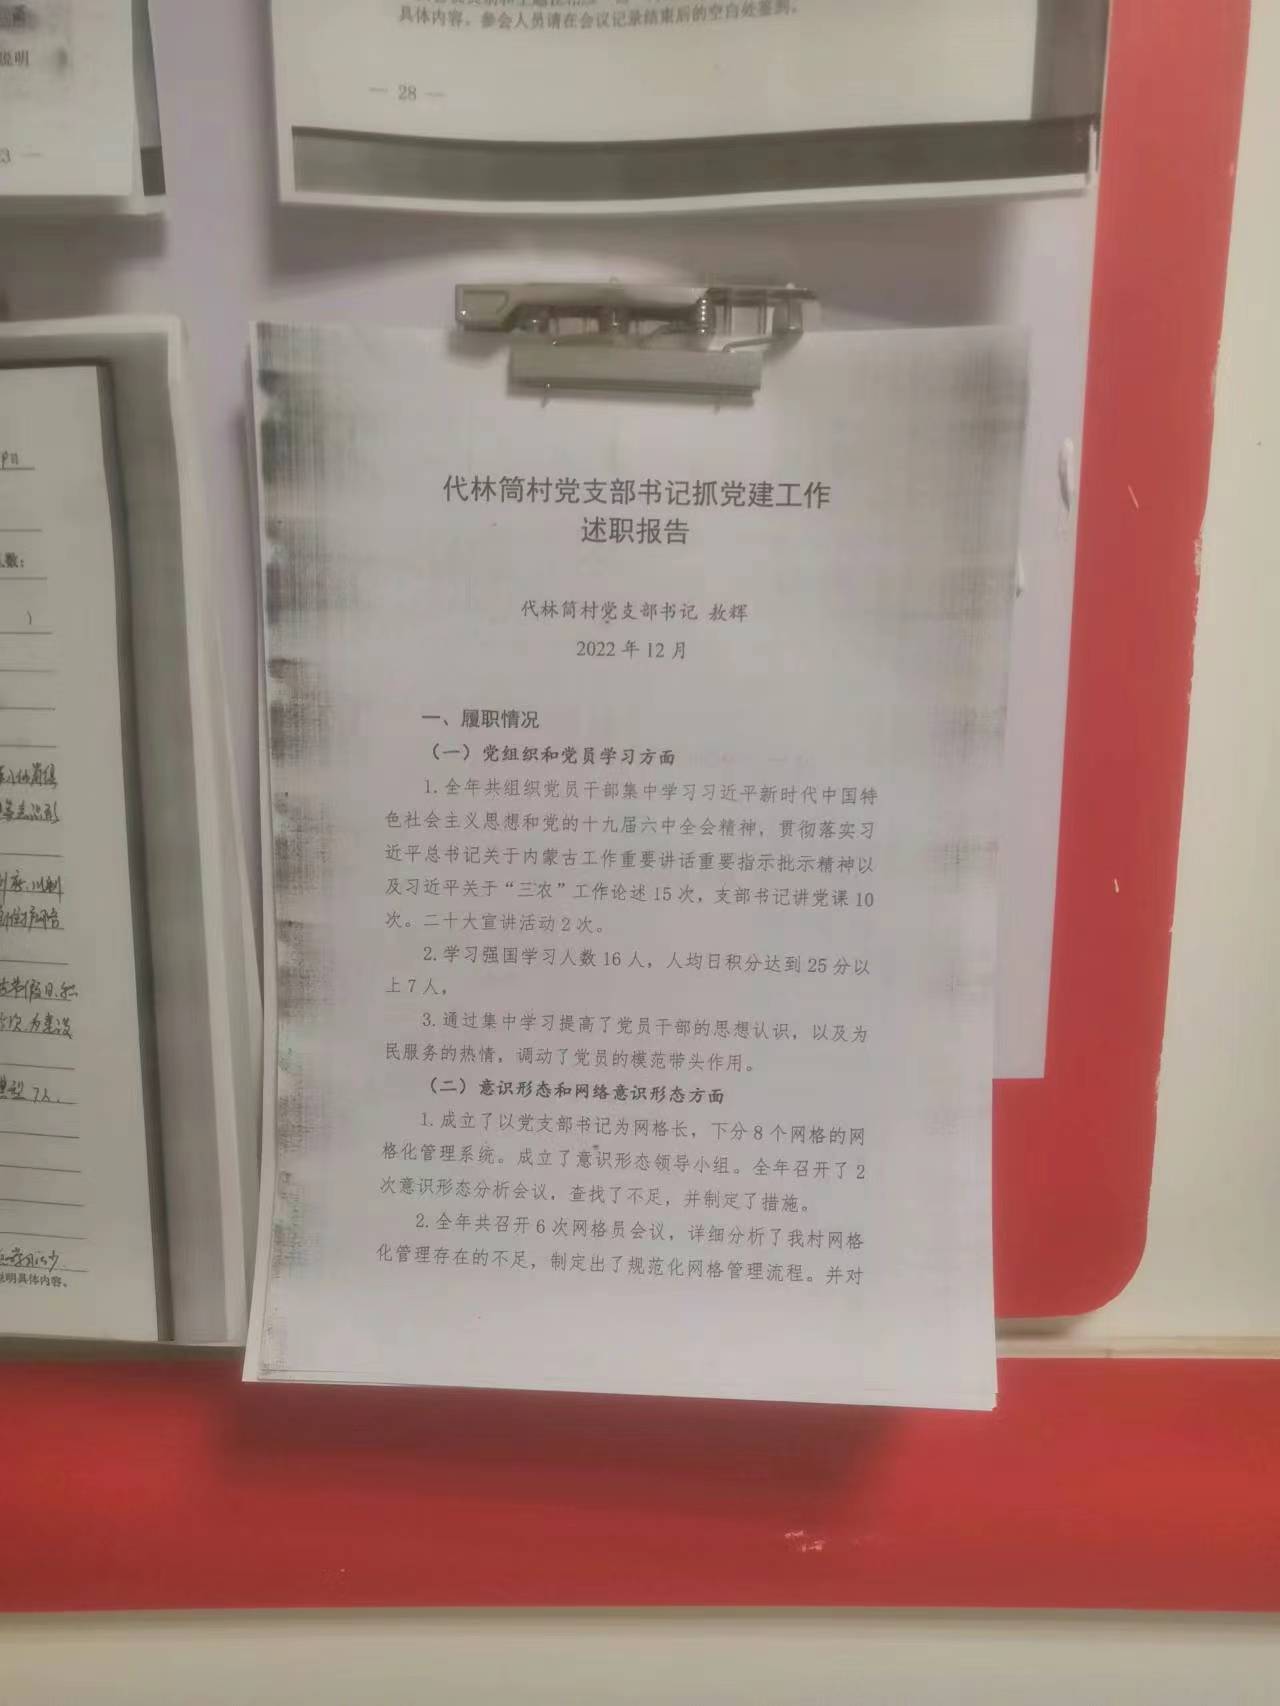 具体内容。参会人员请在会议记录结束后的空白处签到。
— 28 —
说明
数：
说明具体内容。
代林筒村党支部书记抓党建工作
述职报告
代林筒村党支部书记 敖辉
2022 年 12 月
一、履职情况
（一）党组织和党员学习方面
1.全年共组织党员干部集中学习习近平新时代中国特
色社会主义思想和党的十九届六中全会精神，贯彻落实习
近平总书记关于内蒙古工作重要讲话重要指示批示精神以
及习近平关于“三农”工作论述 15 次，支部书记讲党课 10
次。二十大宣讲活动 2 次。
2.学习强国学习人数 16 人，人均日积分达到 25 分以
上 7 人。
3.通过集中学习提高了党员干部的思想认识，以及为
民服务的热情，调动了党员的模范带头作用。
（二）意识形态和网络意识形态方面
1.成立了以党支部书记为网格长，下分 8 个网格的网
格化管理系统。成立了意识形态领导小组。全年召开了 2
次意识形态分析会议，查找了不足，并制定了措施。
2.全年共召开 6 次网格员会议，详细分析了我村网格
化管理存在的不足，制定出了规范化网格管理流程。并对